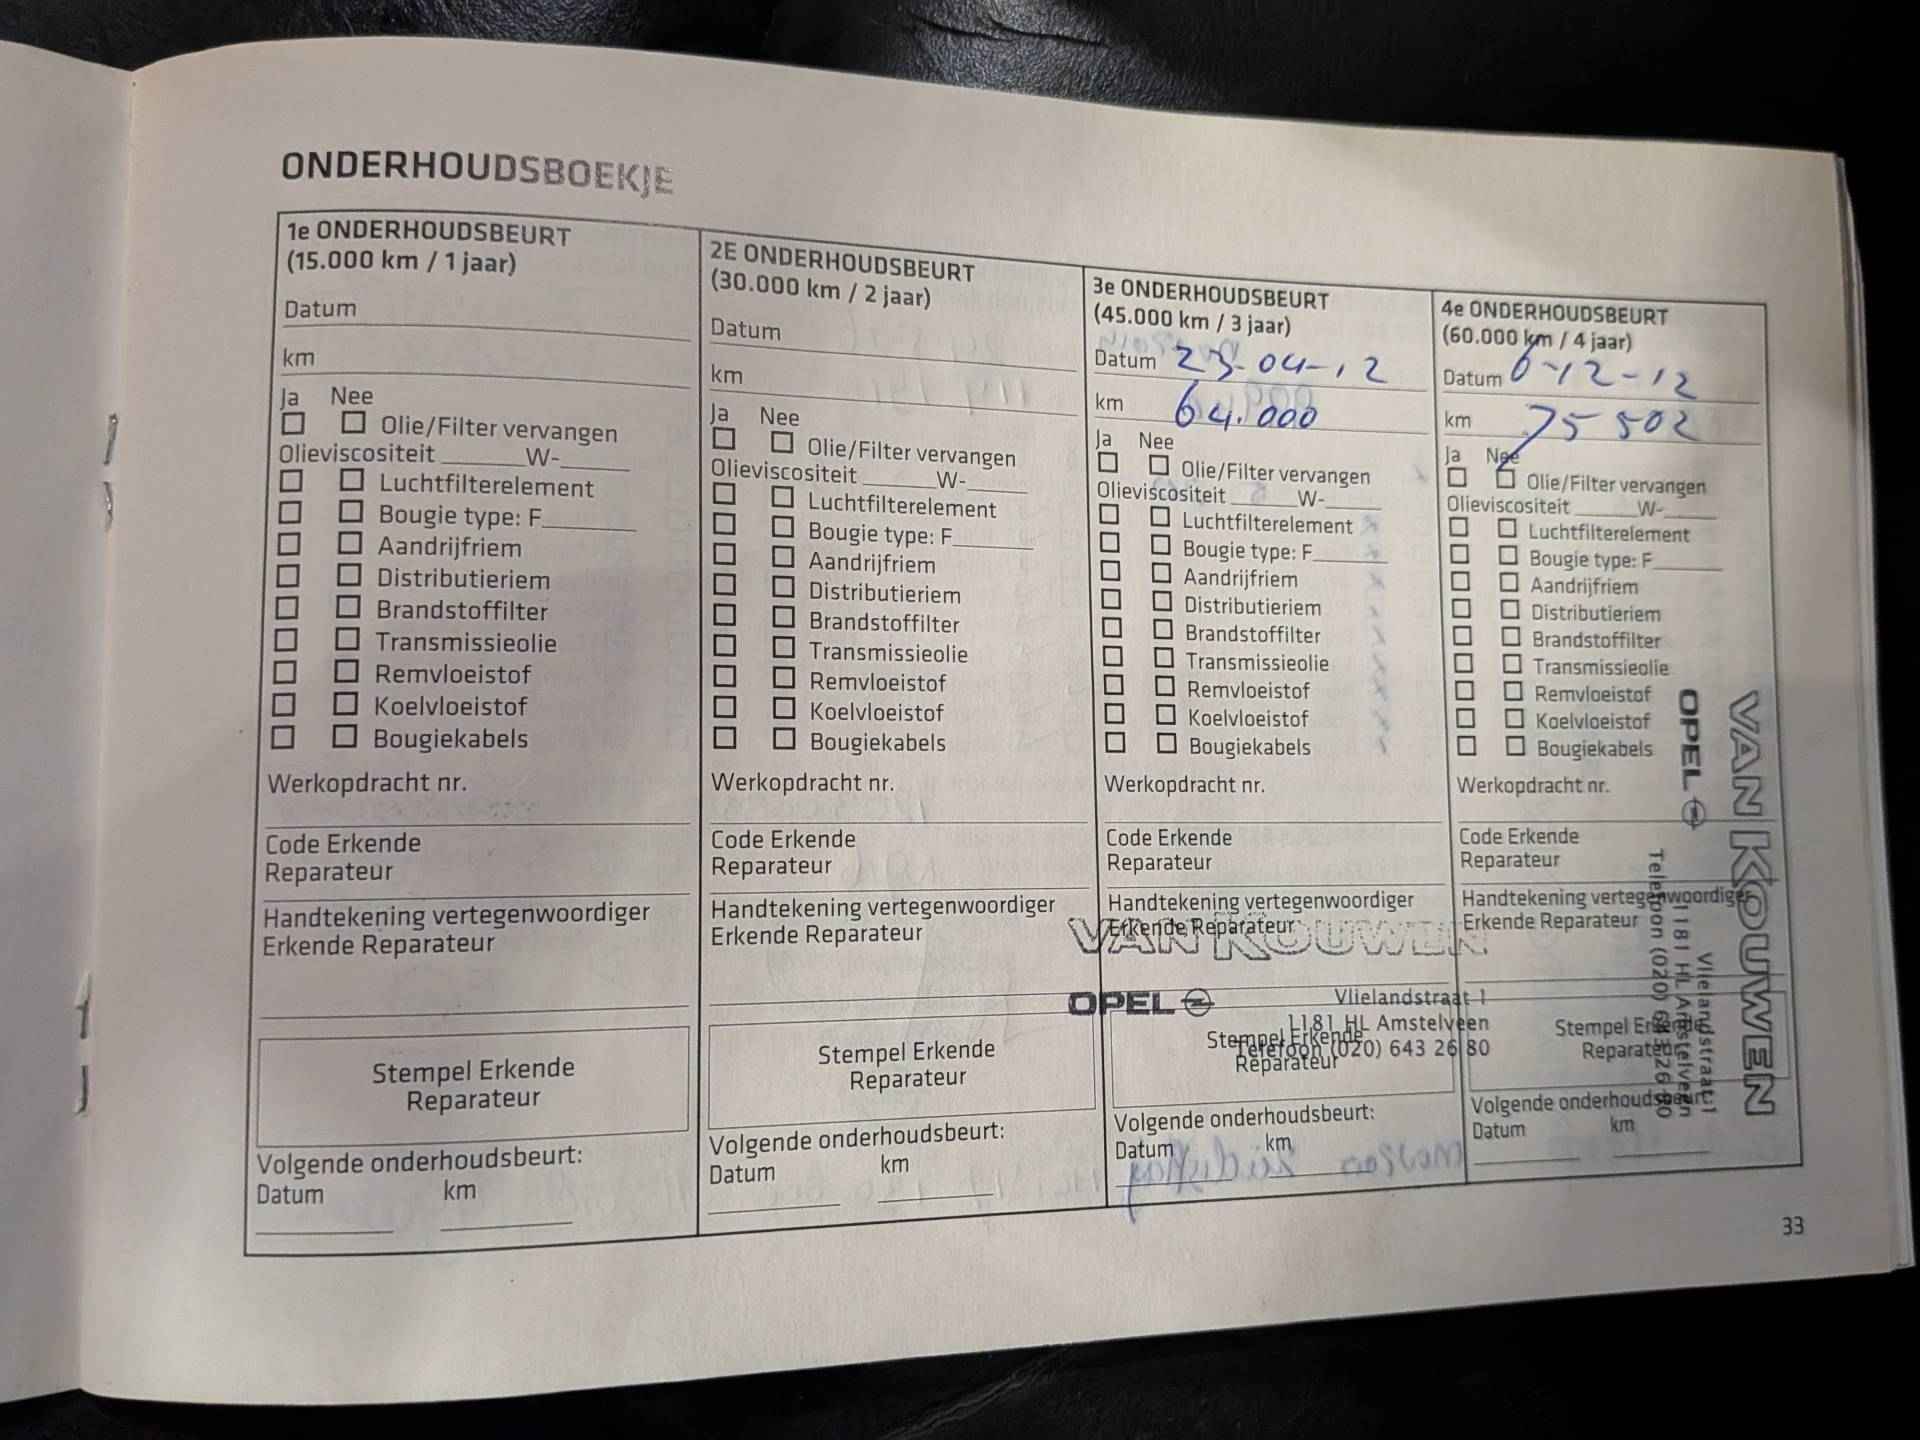 ONDERHOUDSBOEKJE
1e ONDERHOUDSBEURT
(15.000 km / 1 jaar)
Datum
km
Ja Nee
Olie/Filter vervangen
Olieviscositeit ______W-______
Luchtfilterelement
Bougie type: F________
Aandrijfriem
Distributieriem
Brandstoffilter
Transmissieolie
Remvloeistof
Koelvloeistof
Bougiekabels
Werkopdracht nr.
Code Erkende
Reparateur
Handtekening vertegenwoordiger
Erkende Reparateur
Stempel Erkende
Reparateur
Volgende onderhoudsbeurt:
Datum km
2E ONDERHOUDSBEURT
(30.000 km / 2 jaar)
Datum
km
Ja Nee
Olie/Filter vervangen
Olieviscositeit ______W-______
Luchtfilterelement
Bougie type: F________
Aandrijfriem
Distributieriem
Brandstoffilter
Transmissieolie
Remvloeistof
Koelvloeistof
Bougiekabels
Werkopdracht nr.
Code Erkende
Reparateur
Handtekening vertegenwoordiger
Erkende Reparateur
Stempel Erkende
Reparateur
Volgende onderhoudsbeurt:
Datum km
3e ONDERHOUDSBEURT
(45.000 km / 3 jaar)
Datum 23-04-12
km 64.000
Ja Nee
Olie/Filter vervangen
Olieviscositeit ______W-______
Luchtfilterelement
Bougie type: F________
Aandrijfriem
Distributieriem
Brandstoffilter
Transmissieolie
Remvloeistof
Koelvloeistof
Bougiekabels
Werkopdracht nr.
Code Erkende
Reparateur
Handtekening vertegenwoordiger
Erkende Reparateur
VAN KOUWEN
OPEL
Vlielandstraat 1
1181 HL Amstelveen
Telefoon (020) 643 26 80
Stempel Erkende
Reparateur
Volgende onderhoudsbeurt:
Datum km
4e ONDERHOUDSBEURT
(60.000 km / 4 jaar)
Datum 6-12-12
km 75 502
Ja Nee
Olie/Filter vervangen
Olieviscositeit ______W-______
Luchtfilterelement
Bougie type: F________
Aandrijfriem
Distributieriem
Brandstoffilter
Transmissieolie
Remvloeistof
Koelvloeistof
Bougiekabels
Werkopdracht nr.
Code Erkende
Reparateur
Handtekening vertegenwoordiger
Erkende Reparateur
Stempel Erkende
Reparateur
Volgende onderhoudsbeurt:
Datum km
VAN KOUWEN
OPEL
Vlielandstraat 1
1181 HL Amstelveen
Telefoon (020) 643 26 80
33